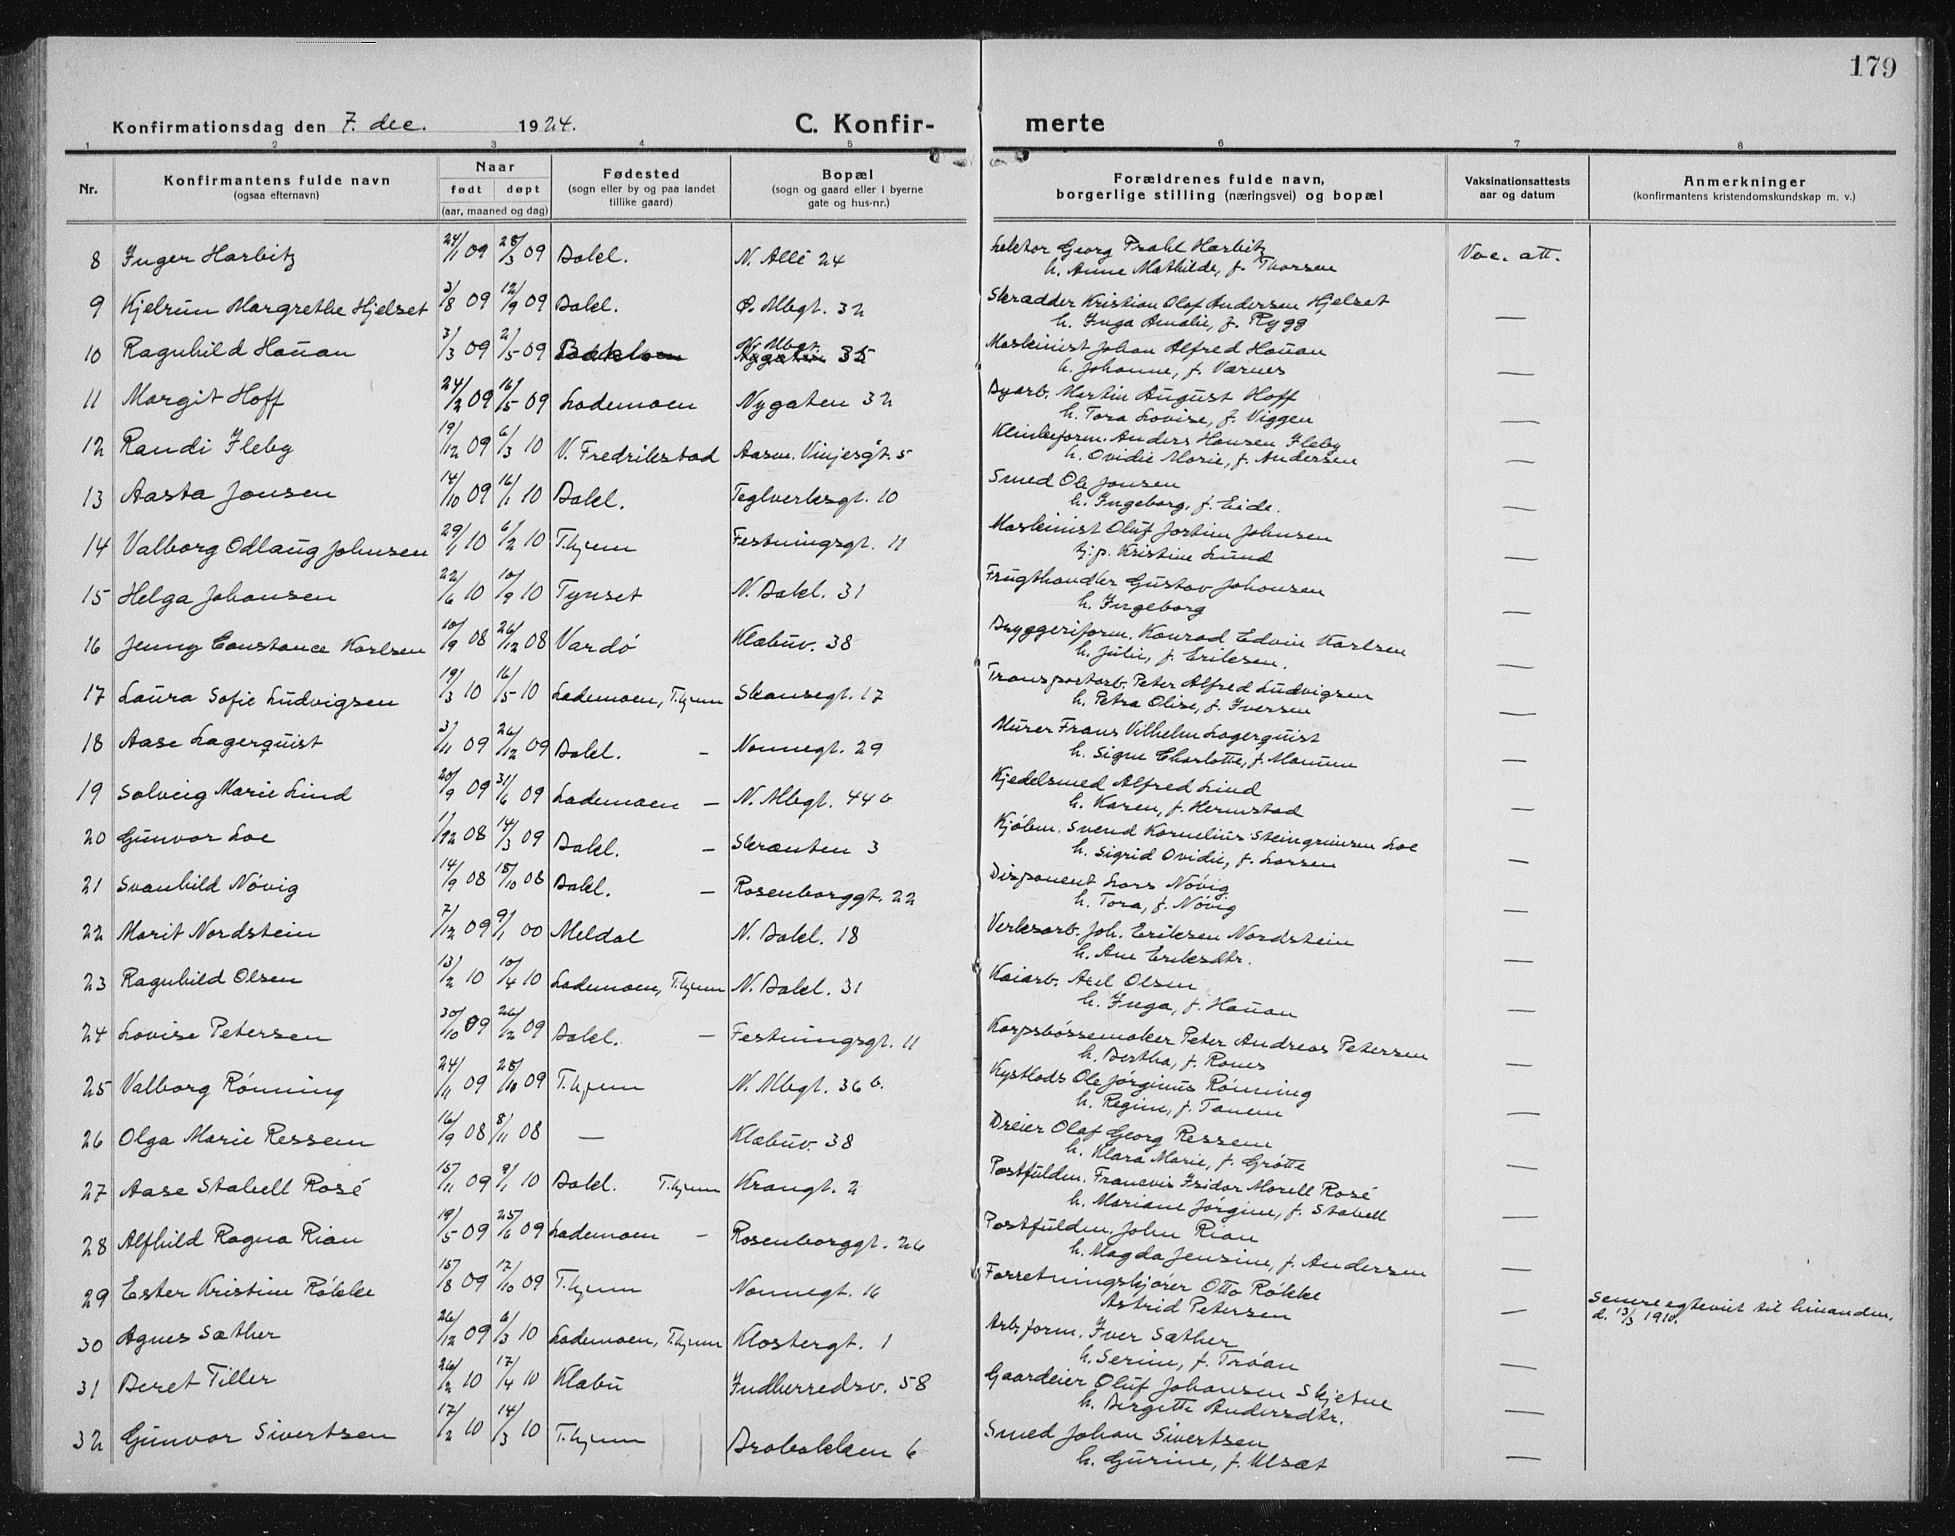 179
Konfirmationsdag den 7. dec. 1924. C. Konfir- merte
1 2 3 4 5 6 7 8
Nr. Konfirmantens fulde navn (ogsaa efternavn) Naar født døpt (aar, maaned og dag) Fødested (sogn eller by og paa landet tillike gaard) Bopæl (sogn og gaard eller i byerne gate og hus-nr.) Forældrenes fulde navn, borgerlige stilling (næringsvei) og bopæl Vaksinationsattests aar og datum Anmerkninger (konfirmantens kristendomskundskap m. v.)
8 Inger Harbitz 24/1 09 28/3 09 Bakl. N. Allé 24 Lektor Georg Prahl Harbitz Vac. att.
h. Anne Mathilde, f. Thorsen
9 Kjelrun Margrethe Hjelset 3/8 09 12/9 09 Bakl. Ø. Mbgt. 32 Skrædder Kristian Olaf Andersen Hjelset
h. Inga Amalie, f. Rygg —
10 Ragnhild Hauan 3/3 09 2/5 09 N. Mbgt. 35 Maskinist Johan Alfred Hauan
h. Johanne, f. Værnes —
11 Margit Hoff 24/2 09 16/5 09 Lademoen Nygaten 32 Byarb. Martin August Hoff
h. Tora Lovise, f. Viggen —
12 Randi Ileby 19/12 09 6/3 10 V. Fredrikstad Aasm. Vinjesgt. 5 Klinkeform. Anders Hansen Ileby
h. Ovidie Marie, f. Andersen —
13 Aasta Jensen 14/10 09 16/1 10 Bakl. Teglverksgt. 10 Smed Ole Jensen
h. Ingeborg, f. Eide. —
14 Valborg Odlaug Johnsen 29/1 10 6/2 10 T.hjem Festningsgt. 11 Maskinist Oluf Jostein Johnsen
Kristine Lund —
15 Helga Johansen 22/6 10 10/9 10 Tynset N. Bakl. 31 Frugthandler Gustav Johansen
h. Ingeborg —
16 Jenny Constance Karlsen 10/9 08 26/12 08 Vardö Klæbuv. 38 Bryggeriform. Konrad Edvin Karlsen
h. Julie, f. Eriksen. —
17 Laura Sofie Ludvigsen 19/3 10 16/5 10 Lademoen, T.hjem Skansegt. 17 Transportarb. Peter Alfred Ludvigsen
h. Petra Olise, f. Iversen —
18 Aase Lagerquist 3/11 09 26/12 09 Bakl. – Nonnegt. 29 Murer Frans Vilhelm Lagerquist
h. Signe Charlotte, f. Manum —
19 Solveig Marie Lind 20/9 09 31/6 09 Lademoen – N. Mbgt. 44 b Kjedelsmed Alfred Lind
h. Karen, f. Hermstad —
20 Gunvor Loe 1/12 08 14/3 09 Bakl. – Skrænten 3 Kjøbm. Svend Kornelius Steingrimsen Loe
h. Sigrid Ovidie, f. Larsen —
21 Svanhild Növig 14/9 08 18/10 08 Bakl. – Rosenborggt. 22 Disponent Lars Növig
h. Tora, f. Növig —
22 Marit Nordstein 7/12 09 9/1 00 Meldal N. Bakl. 18 Verksarb. Joh. Eriksen Nordstein
h. Ane Eriksdtr. —
23 Ragnhild Olsen 13/2 10 10/4 10 Lademoen, T.hjem N. Bakl. 31 Kaiarb. Axel Olsen
h. Inga, f. Hauan —
24 Lovise Petersen 30/10 09 26/12 09 Bakl. – Festningsgt. 11 Korpsbössemaker Peter Andreas Petersen
h. Bertha, f. Ranes —
25 Valborg Rönning 24/11 09 28/10 09 T.hjem N. Mbgt. 36 b. Kystlods Ole Jörginus Rönning
h. Regine, f. Tanem —
26 Olga Marie Ressem 16/9 08 8/11 08 — Klæbuv. 38 Dreier Olaf Georg Ressem
h. Klara Marie, f. Grötte —
27 Aase Stabell Rosé 15/11 09 9/1 10 Bakl. T.hjem Krangt. 2 Postfuldm. Francois Fridar Morell Rosé
h. Mariane Jörgine, f. Stabell —
28 Alfhild Ragna Rian 19/5 09 25/6 09 Lademoen – Rosenborggt. 26 Postfuldm. John Rian
h. Magda Jensine, f. Andersen —
29 Ester Kristine Rökke 15/8 09 17/10 09 T.hjem Nonnegt. 16 Forretningskjører Otto Rökke
Astrid Petersen — Senere egteviet til hinanden d. 13/3 1910.
30 Agnes Sæther 26/12 09 6/3 10 Lademoen, T.hjem Klostergt. 1 Arb.form. Iver Sæther
h. Serine, f. Tröan —
31 Beret Tiller 26/2 10 17/4 10 Klæbu Indherredsv. 58 Gaardeier Oluf Johansen Skjetne
h. Birgitte Andersdtr. —
32 Gunvor Sivertsen 17/2 10 14/3 10 T.hjem Brobakken 6 Smed Johan Sivertsen
h. Gurine, f. Ulsæt —